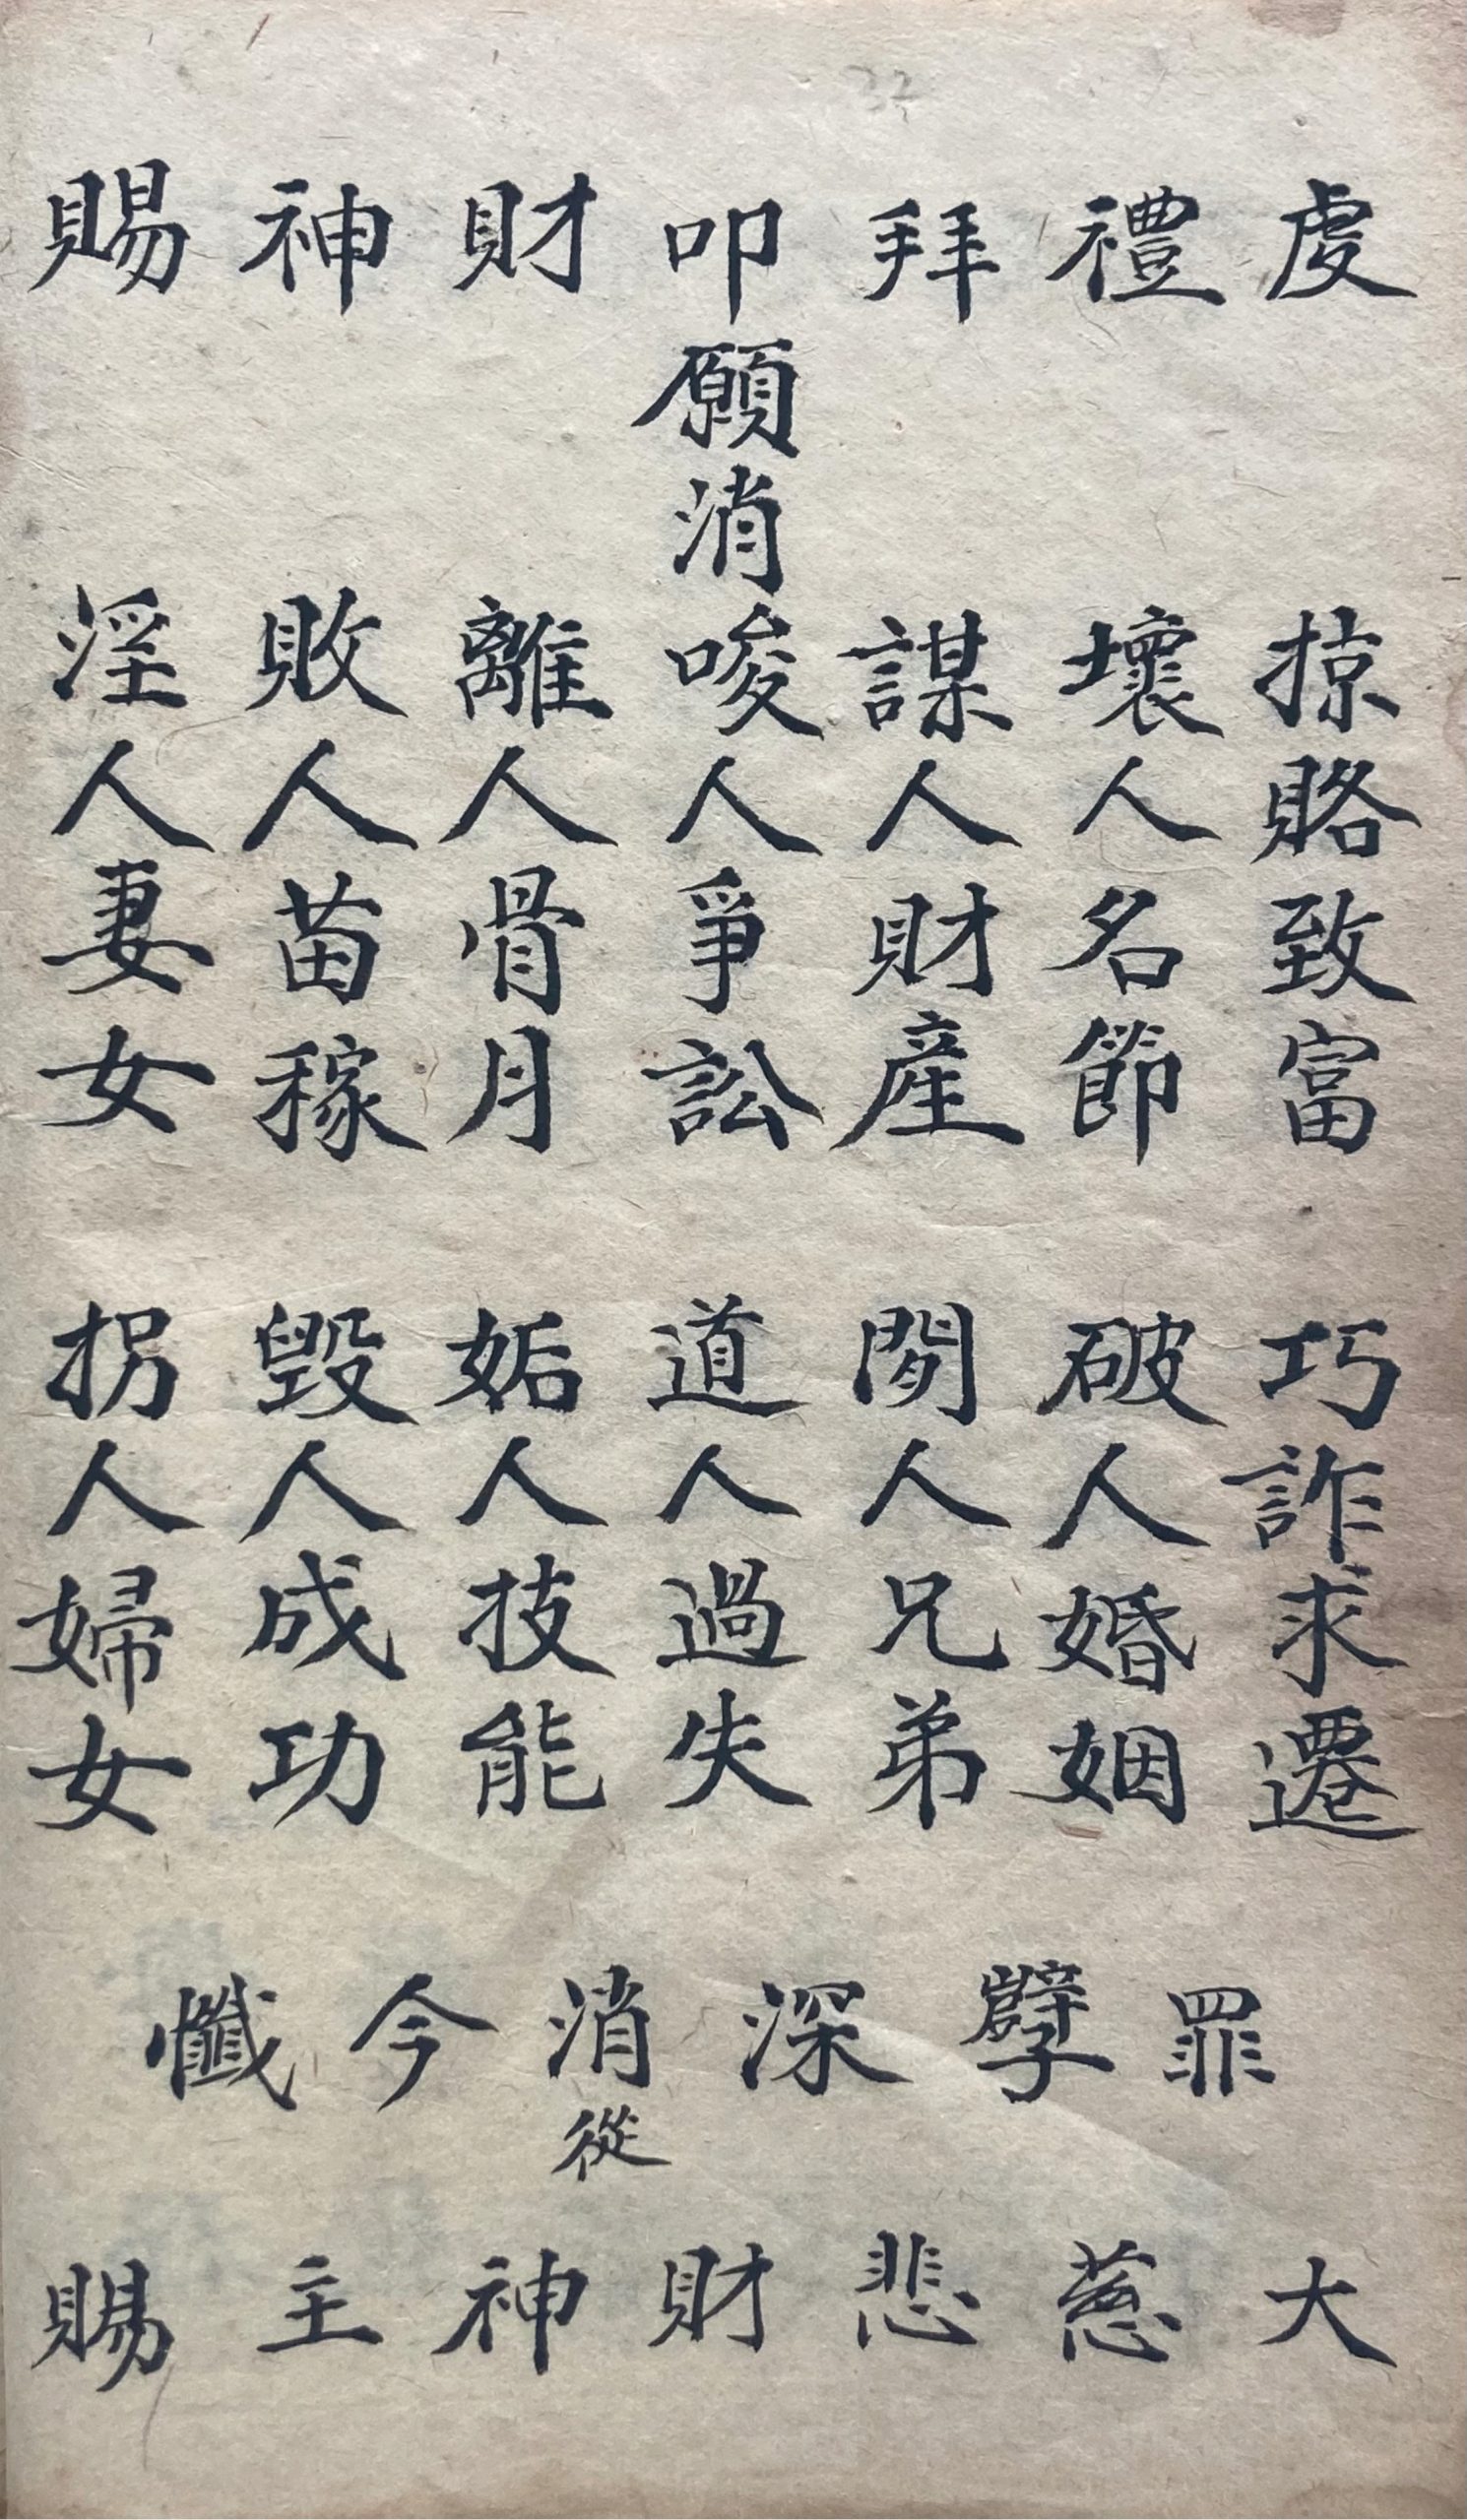 虔禮拜叩財神賜
願消
掠賂致富 巧詐求遷
壞人名節 破人婚姻
謀人財產 閒人兄弟
唆人爭訟 道人過失
離人骨月 妬人技能
敗人苗稼 毀人成功
淫人妻女 拐人婦女
罪孼深消今懺
從
大慈悲財神主賜